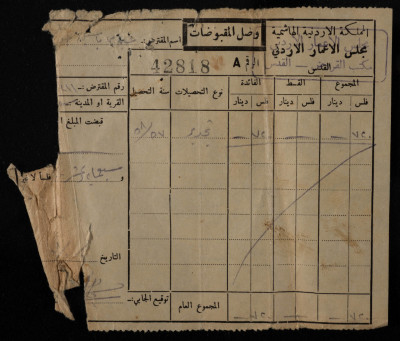 المملكة الاردنية الهاشمية
مجلس الاعمار الاردني
القدس
وصل المقبوضات
اسم المقترض :-
الرقم A 42818
رقم المقترض :-
القرية او المدينة :-
قبضت المبلغ ا
المجموع القسط الفائدة نوع التحصيلات سنة التحصيل
فلس دينار فلس دينار فلس دينار
٧٥٠ — ٧٥٠ — تجديد ٥٧/٥٨
التاريخ
المجموع العام
٧٥٠ — ٧٥٠ —
توقيع الجابي :-